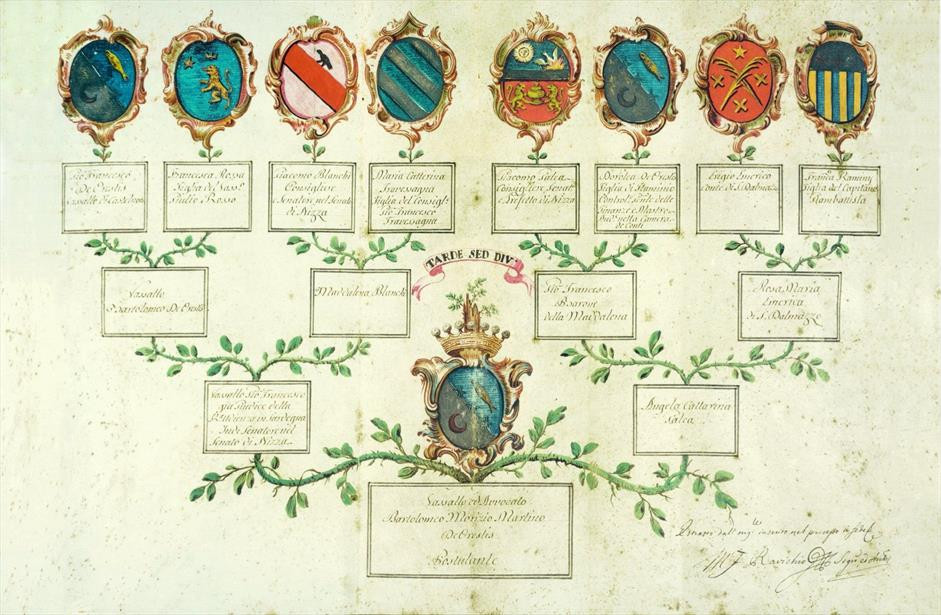 Gio Francesco
De Orestis
Vassallo di Castelnovo
Francesca Rossa
Figlia del Vass.
Giulio Rosso
Giacomo Blanchi
Consigliere
e Senatore nel Senato
di Nizza
Maria Catterina
Travessagna
Figlia del Consigl.
Gio Francesco
Travessagna
Giacomo Salca
Consigliere, Senat.
e Prefetto di Nizza
Dorotea De Orestis
Figlia di Flaminio
Control. delle
Finanze e Mastro
nella Camera
de Conti
Luigi Emerico
Conte di S. Dalmazzo
Franca
Figlia del Capitano
Giambattista
Vassallo
Bartolomeo De Orestis
Maddalena Blanchi
TARDE SED DIV
Gio Francesco
Barone
della Maddalena
Rosa Maria
Emerica
di S. Dalmazzo
Vassallo Gio Francesco
già Giudice della
in Sardegna
Indi Senatore nel
Senato di Nizza
Angela Cattarina
Salca
Vassallo ed Avvocato
Bartolomeo Morizio Martino
De Orestis
Postulante